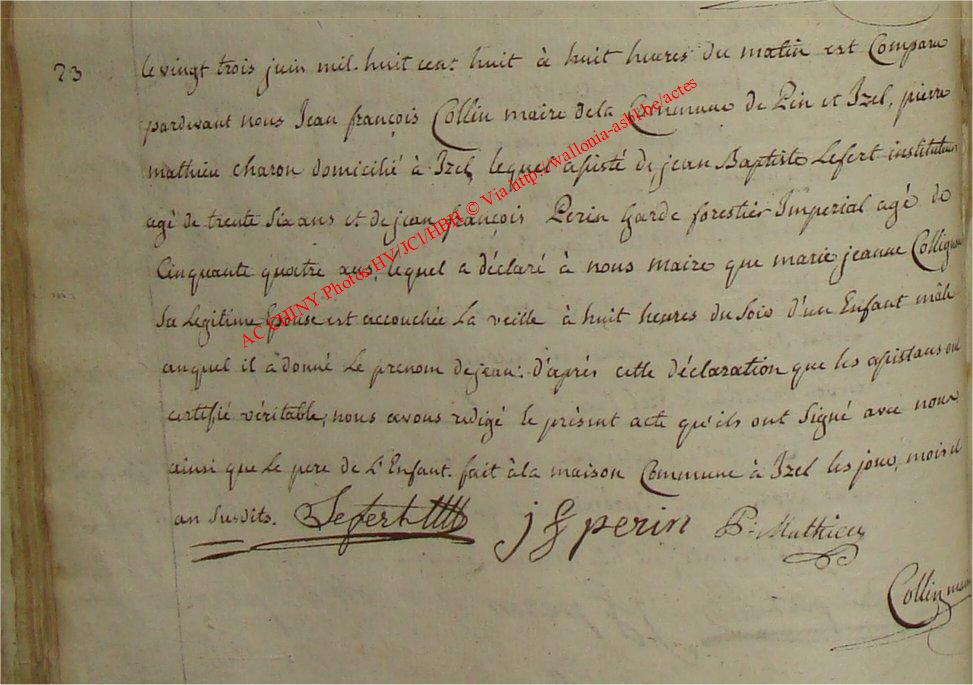 23
le vingt trois juin mil huit cent huit à huit heures du matin est Comparu
pardevant nous Jean françois Collin maire dela Commune de Pin et Izel, pierre
mathieu charon domicilié à Izel, lequel assisté de jean Baptiste Lefert instituteur
agé de trente Six ans et de jean françois Perin Garde forestier Imperial agé de
Cinquante quatre ans, lequel a déclaré à nous maire que marie jeanne Collignon
Sa Legitime Epouse est accouchée La veille à huit heures du Soir d'un Enfant mâle
auquel il à donné Le prenom de jean: d'après cette déclaration que les assistans ont
certifié véritable, nous avons redigé le présent acte qu'ils ont Signé avec nous
ainsi que Le pere de L'Enfant. fait à la maison Commune à Izel les jour, mois et
an Susdits. Lefert
jf perin
P. Mathieu
Collin maire
AC CHINY Photos HV/JCl/HBH © Via http://wallonia-asbl.be/actes